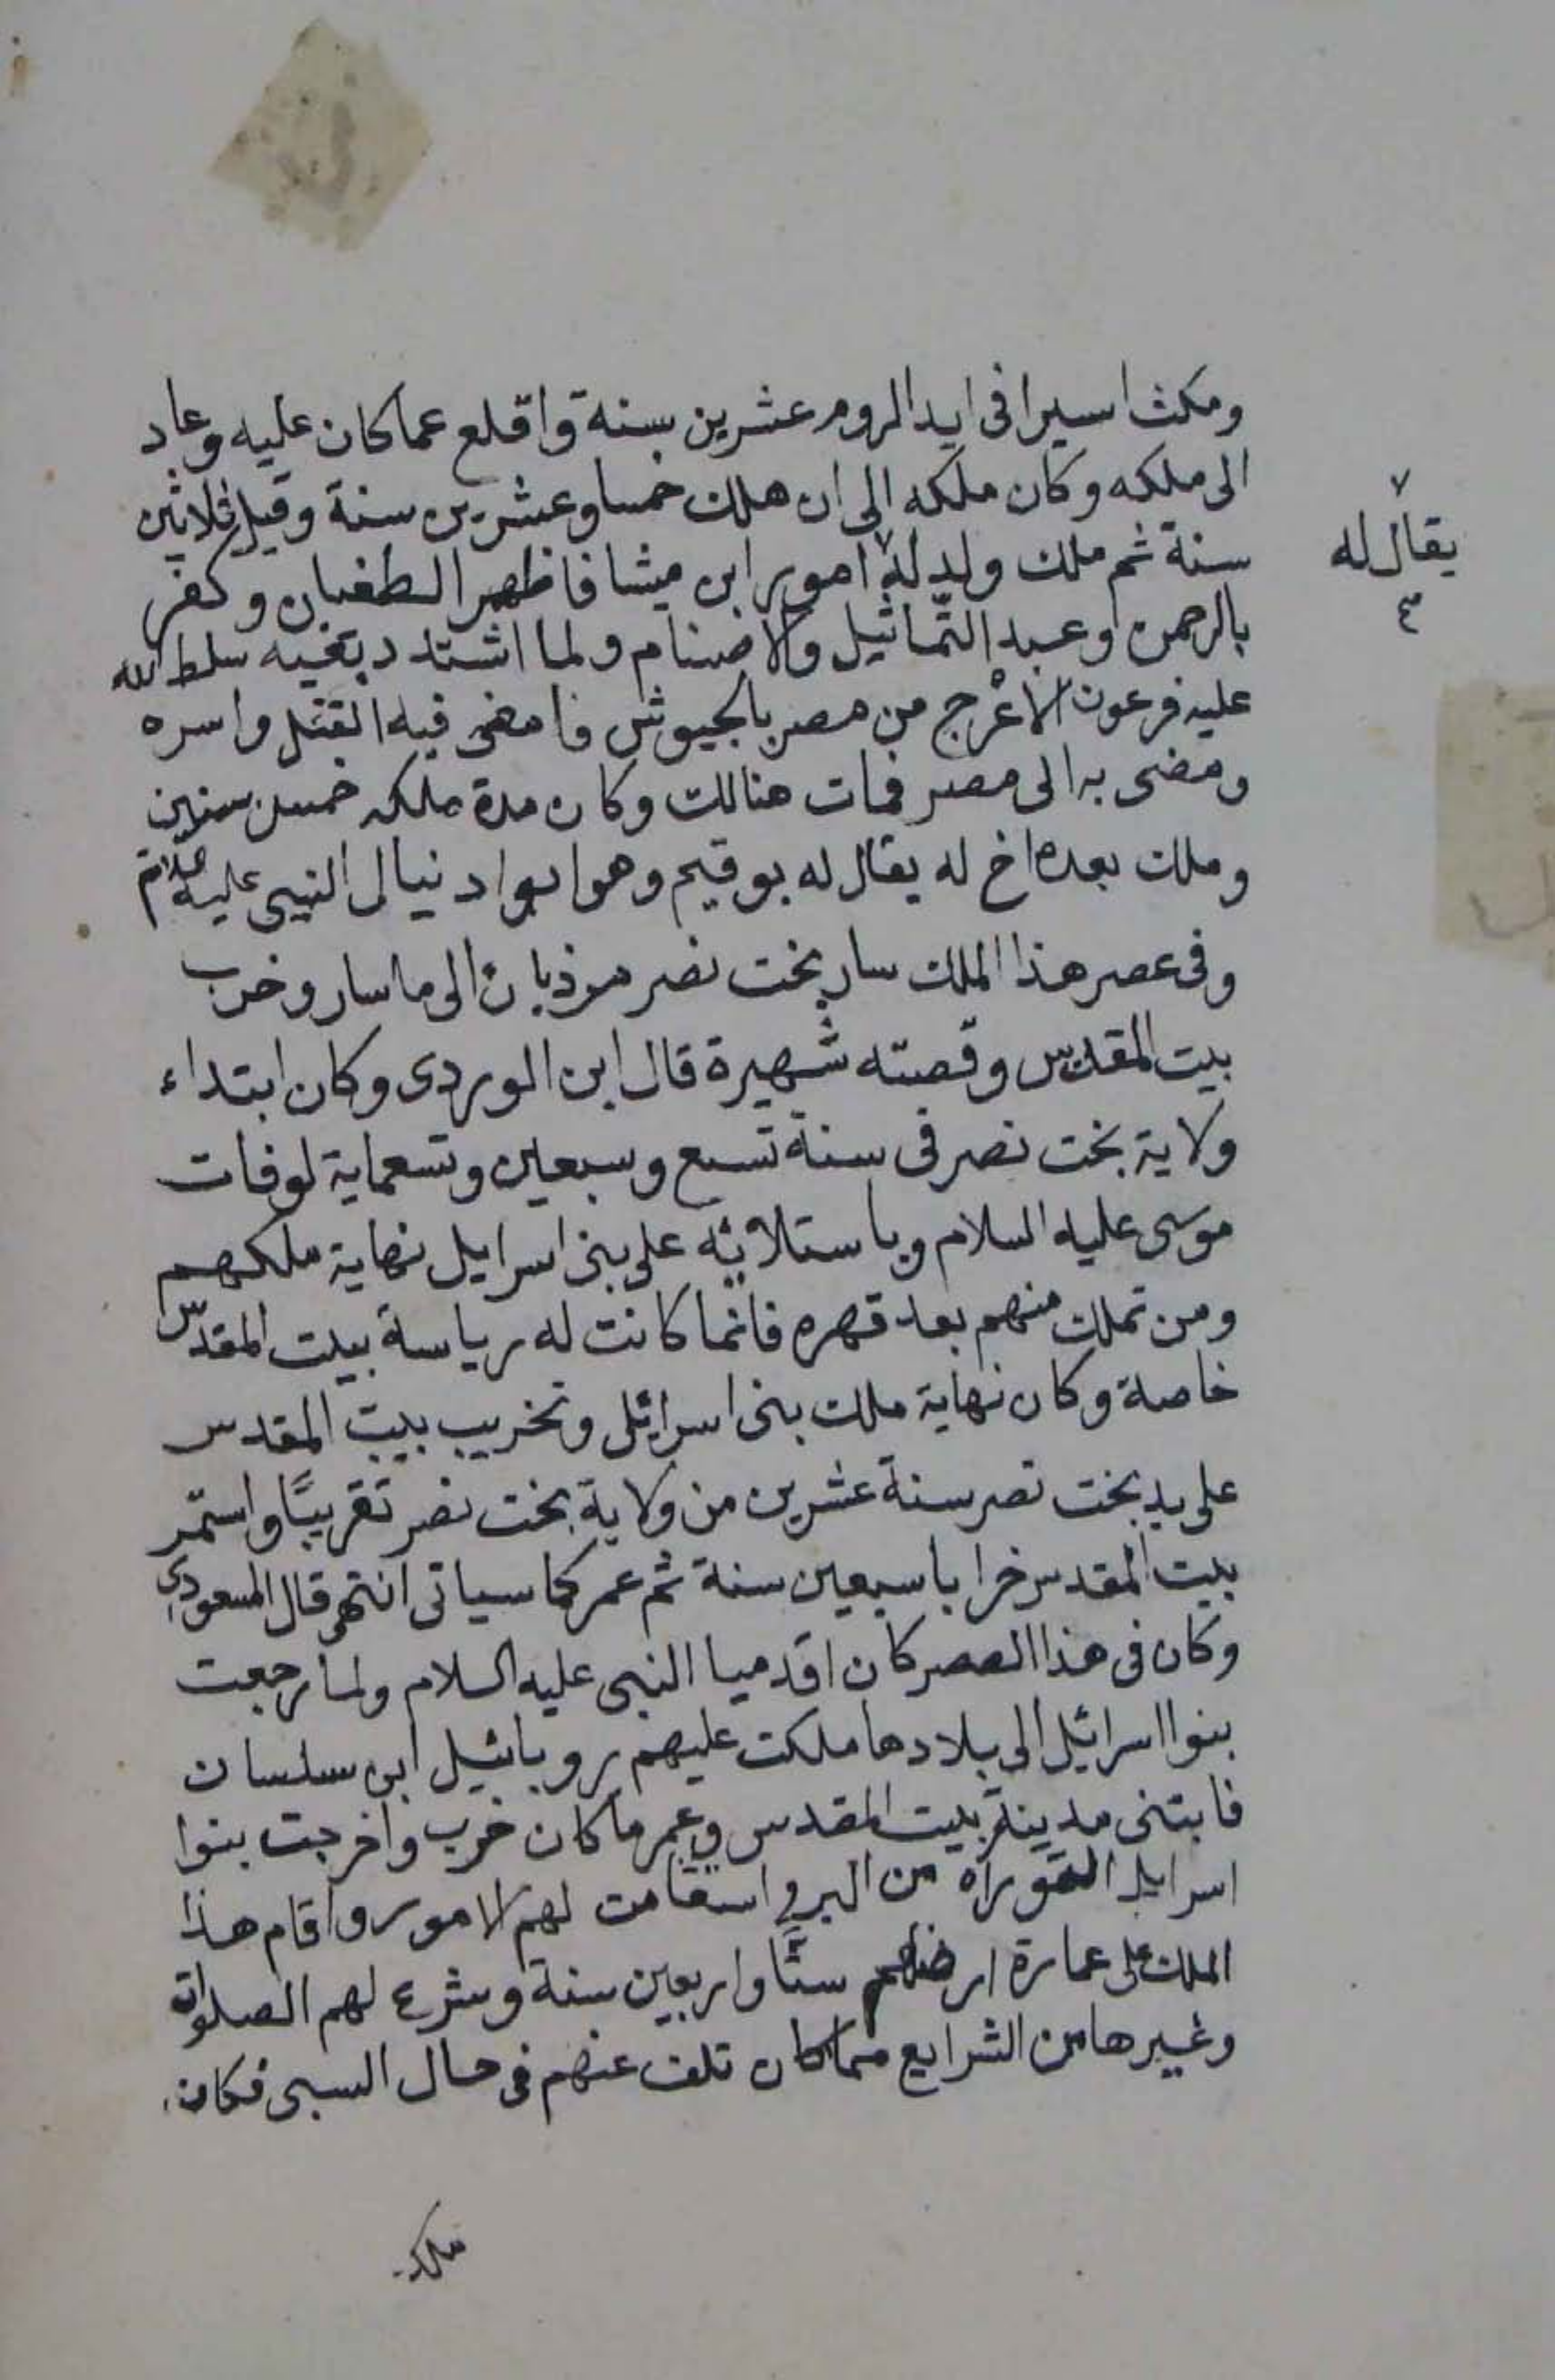 ومكث اسيرا فى ايد الروم عشرين سنة واقلع عما كان عليه وعاد
الى ملكه وكان ملكه الى ان هلك خمسا وعشرين سنة وقيل ثلاثين
سنة ثم ملك ولد له امور ابن ميشا فاظهر الطغيان وكفر
يقال له
بالرحمن وعبد التماثيل والاصنام ولما اشتد بغيه سلط الله
عليه فرعون الاعرج من مصر بالجيوش فامعن فيه القتل واسره
ومضى به الى مصر فمات هنالك وكان مدة ملكه خمس سنين
وملك بعده اخ له يقال له بوقيم وهو ابوا دنيال النبى عليه السلام
وفى عصر هذا الملك سار بخت نصر مرذبان الى ما سار وخرب
بيت المقدس وقصته شهيرة قال ابن الوردى وكان ابتداء
ولاية بخت نصر فى سنة تسع وسبعين وتسعماية لوفات
موسى عليه السلام وباستلائه على بنى اسرايل نهاية ملكهم
ومن تملك منهم بعد قهره فانما كانت له رياسة بيت المقدس
خاصة وكان نهاية ملك بنى اسرائل وتخريب بيت المقدس
على يد بخت نصر سنة عشرين من ولاية بخت نصر تقريبًا واستمر
بيت المقدس خرابا سبعين سنة ثم عمر كما سياتى انتهى قال المسعودى
وكان فى هذا العصر كان اقدميا النبى عليه السلام ولما رجعت
بنوا اسرائيل الى بلادها ملكت عليهم روبائيل ابن سلسان
فابتنى مدينة بيت المقدس وعمر ما كان خرب واخرجت بنوا
اسرايل التوراة من البر واستقامت لهم الامور واقام هذا
الملك على عمارة ارضهم ستًا واربعين سنة وشرع لهم الصلوات
وغيرها من الشرايع مما كان تلف عنهم فى حال السبى فكان
ملكه